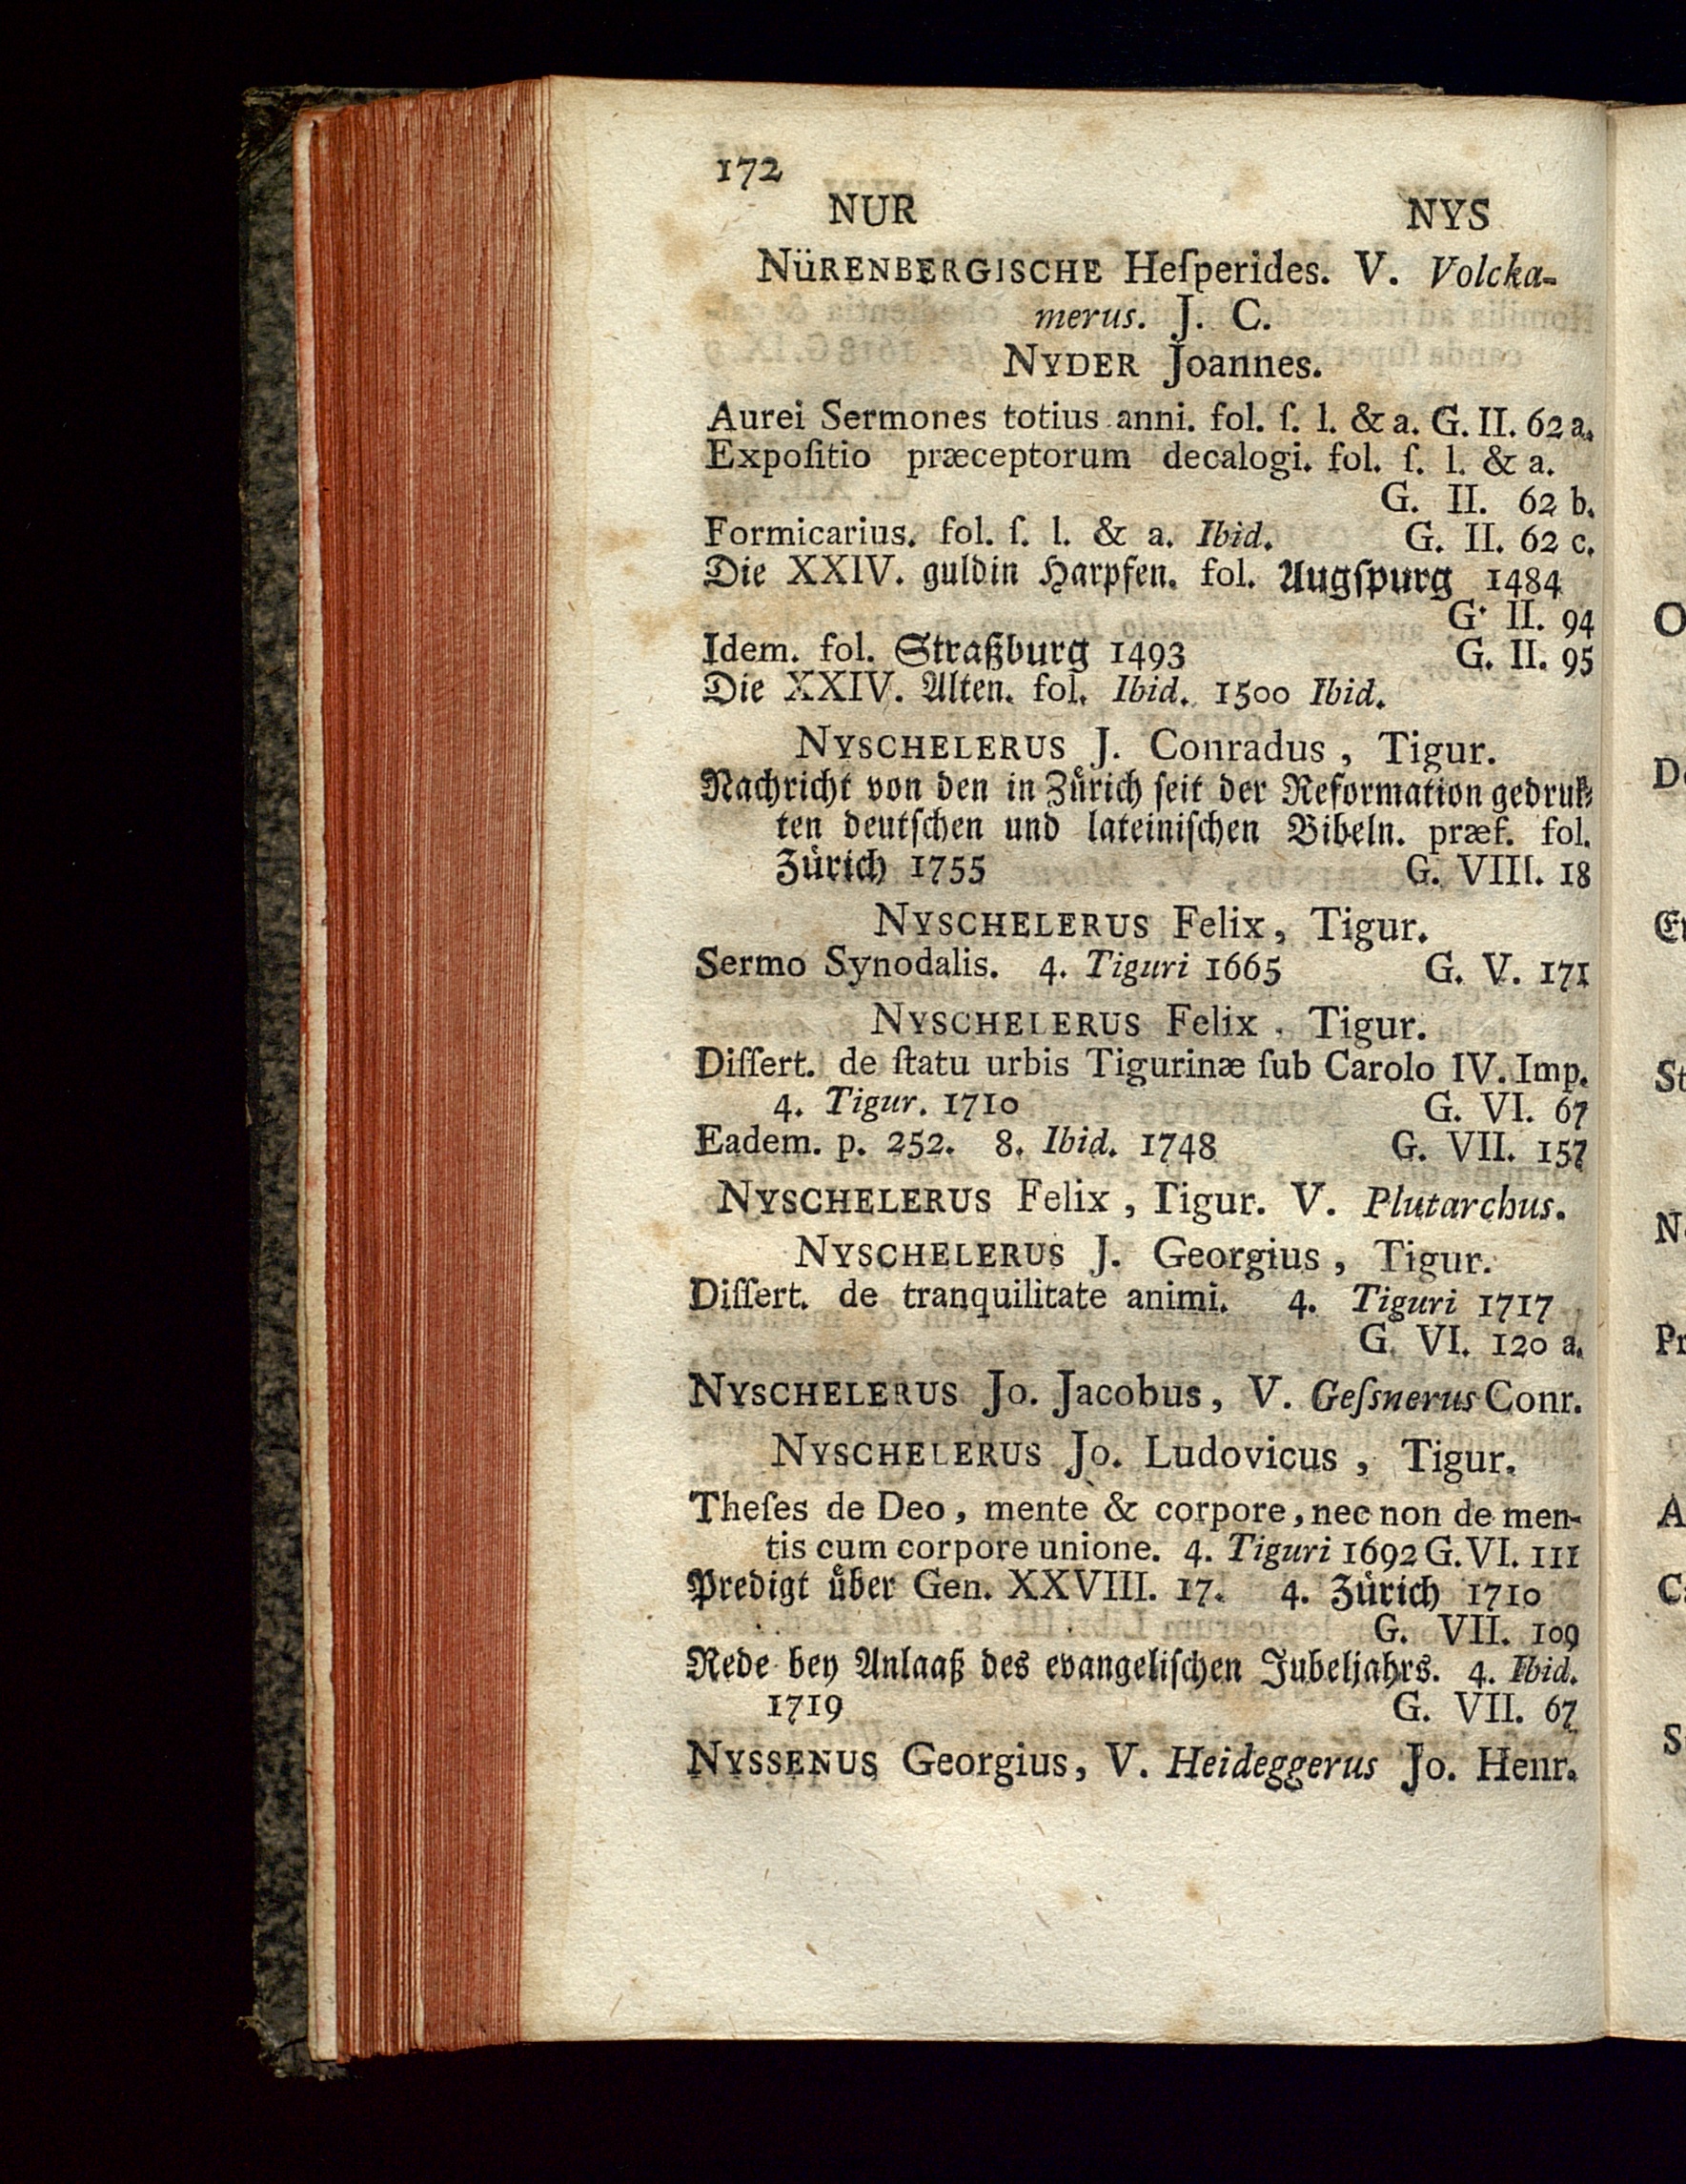 172
NUR NYS
NüRENBERGISCHE Heſperides. V. Volcka-
merus. J. C.
NYDER Joannes.
Aurei Sermones totius anni. fol. ſ. l. & a. G. II. 62 a.
Expoſitio præceptorum decalogi. fol. ſ. l. & a.
G. II. 62 b.
Formicarius. fol. ſ. l. & a. Ibid. G. II. 62 c.
Die XXIV. guldin Harpfen. fol. Augſpurg 1484
G. II. 94
Idem. fol. Straßburg 1493 G. II. 95
Die XXIV. Alten. fol. Ibid. 1500 Ibid.
NYSCHELERUS J. Conradus, Tigur.
Nachricht von den in Zuͤrich ſeit der Reformation gedruk-
ten deutſchen und lateiniſchen Bibeln. præf. fol.
Zuͤrich 1755 G. VIII. 18
NYSCHELERUS Felix, Tigur.
Sermo Synodalis. 4. Tiguri 1665 G. V. 171
NYSCHELERUS Felix, Tigur.
Diſſert. de ſtatu urbis Tigurinæ ſub Carolo IV. Imp.
4. Tigur. 1710 G. VI. 67
Eadem. p. 252. 8. Ibid. 1748 G. VII. 157
NYSCHELERUS Felix, Tigur. V. Plutarchus.
NYSCHELERUS J. Georgius, Tigur.
Diſſert. de tranquilitate animi. 4. Tiguri 1717
G. VI. 120 a.
NYSCHELERUS Jo. Jacobus, V. Geſsnerus Conr.
NYSCHELERUS Jo. Ludovicus, Tigur.
Theſes de Deo, mente & corpore, nec non de men-
tis cum corpore unione. 4. Tiguri 1692 G. VI. 111
Predigt uͤber Gen. XXVIII. 17. 4. Zuͤrich 1710
G. VII. 109
Rede bey Anlaaß des evangeliſchen Jubeljahrs. 4. Ibid.
1719 G. VII. 67
NYSSENUS Georgius, V. Heideggerus Jo. Henr.